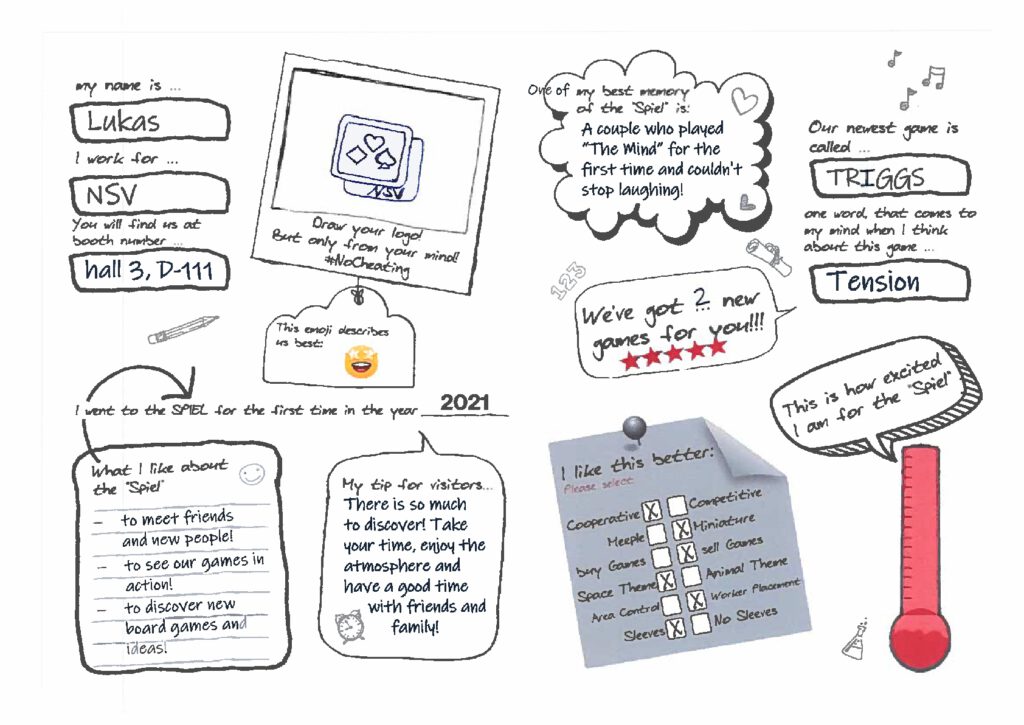 my name is ...
Lukas
I work for ...
NSV
You will find us at
booth number ...
hall 3, D-111
NSV
Draw your logo!
But only from your mind!
#NoCheating
This emoji describes
us best:
I went to the SPIEL for the first time in the year 2021
What I like about
the "Spiel"
– to meet friends
and new people!
– to see our games in
action!
– to discover new
board games and
ideas!
My tip for visitors...
There is so much
to discover! Take
your time, enjoy the
atmosphere and
have a good time
with friends and
family!
One of my best memory
of the "Spiel" is:
A couple who played
"The Mind" for the
first time and couldn't
stop laughing!
Our newest game is
called ...
TRIGGS
one word, that comes to
my mind when I think
about this game ...
Tension
123
We've got 2 new
games for you!!!
This is how excited
I am for the "Spiel"
I like this better:
Please select
Cooperative X Competitive
Meeple X Miniature
buy Games X sell Games
Space Theme X Animal Theme
Area Control X Worker Placement
Sleeves X No Sleeves